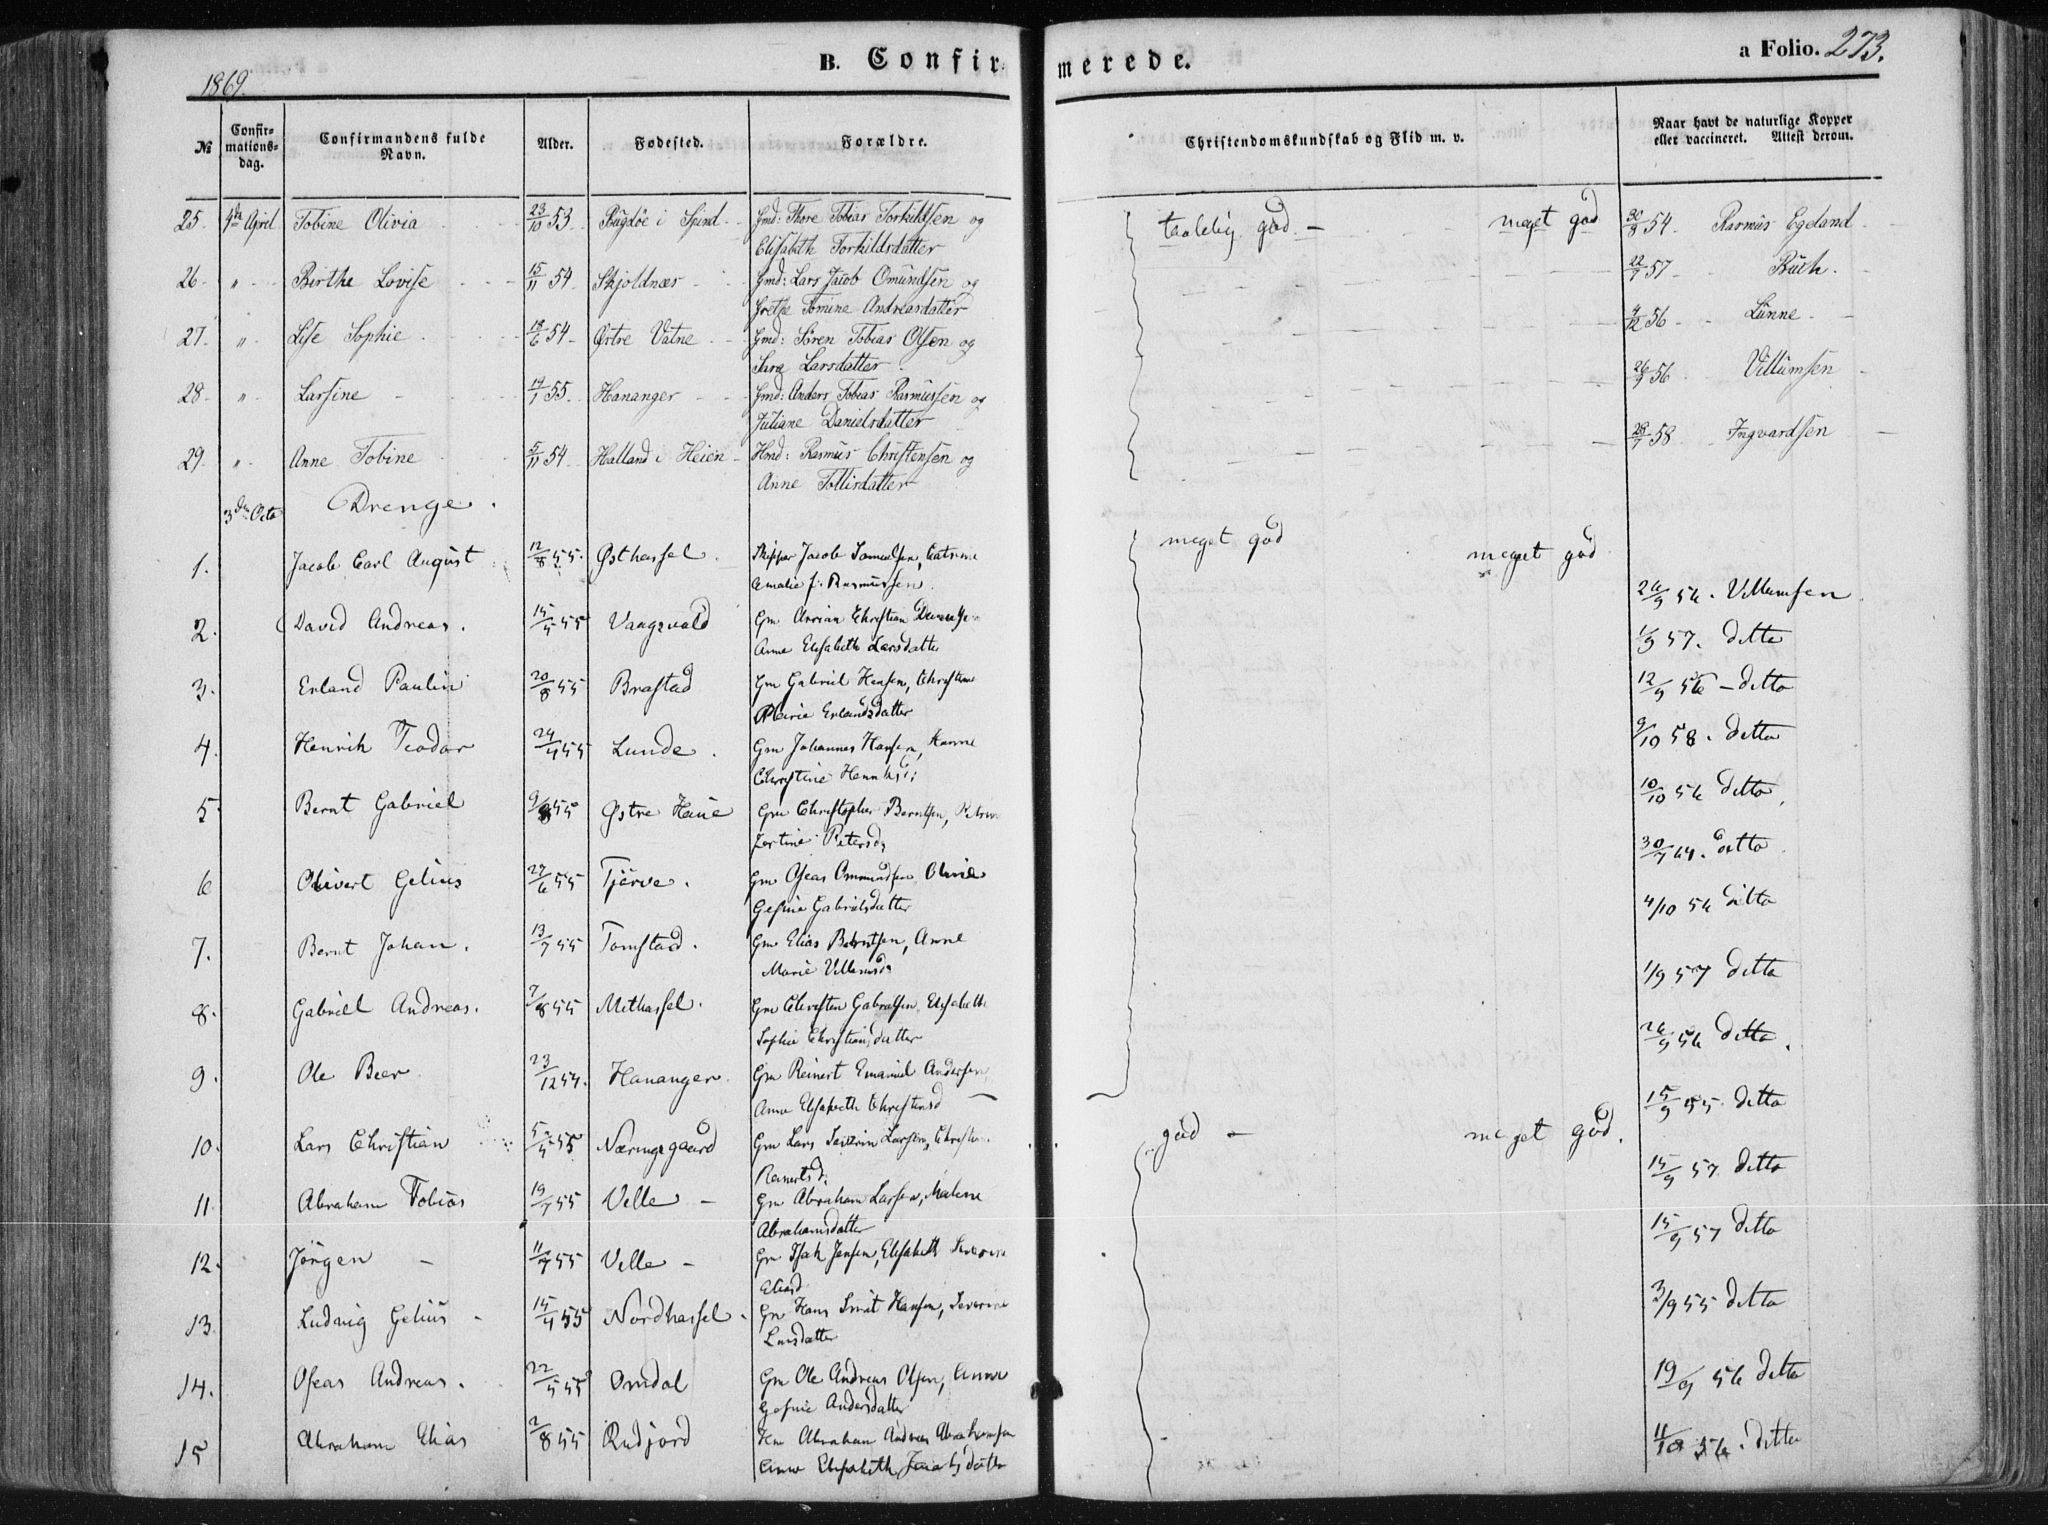 B. Confirmerede.
a Folio. 273.
1869.
№ Confirmationsdag. Confirmandens fulde Navn. Alder. Fødested. Forældre. Christendomskundskab og Flid m. v. Naar havt de naturlige Kopper eller vaccineret. Attest derom.
25. 4de April Tobine Olivia 23/10 53 i Spind Gmd: Thore Tobias Torkildsen og taalelig god. — meget god 30/8 54. Rasmus Egeland
Elisabeth Torkildsdatter
26. " Birthe Lovise 15/11 54 Skjoldnæs Gmd: Lars Jacob Omundsen og 22/7 57 Buch.
Grethe Tomine Andreasdatter
27. " Lise Sophie 18/6 54 Østre Vatne Gmd: Sören Tobias Olsen og 4/12 56 Lunne
Sara Larsdatter
28. " Larsine 19/1 55 Hananger Gmd: Anders Tobias Rasmussen og 26/9 56 Villumsen
Juliane Danielsdatter
29. " Anne Tobine 5/11 54 Halland i Heien Hmd: Rasmus Christensen og 28/7 58 Ingvardsen
Anne Tollisdatter
3die Octo Drenge.
1. Jacob Carl August 12/8 55. Østhassel. Skipper Jacob Samuelsen, Catrine meget god meget god
Amalie f. Rasmussen 26/9 56. Villumsen
2. David Andreas. 15/4 55 Vaagsvold Gm Christian
Anne Elisabeth Larsdatter 1/9 57. ditto
3. Erland Paulin 20/8 55 Brastad Gm Gabriel Hansen, Christine
Marie Erlandsdatter 12/9 56 – ditto
4. Henrik Teodor 24/4 55 Lunde. Gm Johannes Hansen, Hanne 9/10 58. ditto
Christine
5. Bernt Gabriel 9/8 55 Østre Haue Gm Christopher Berntsen, 10/10 56 ditto
Petersd.
6 Olivert Gelius 27/6 55 Tjörve. Gm Oseas Ommundsen, Olivia 30/7 64. ditto
Gesine Gabrielsdatter
7. Bernt Johan. 13/7 55 Tomstad. Gm Elias Berntsen, Anne 4/10 56 ditto
Marie Villumsd.
8. Gabriel Andreas. 7/8 55 Mithassel. Gm Christen Gabrielsen, Elisabeth 1/9 57 ditto
Sophie Christiansdatter
9. Ole Beer 23/12 54. Hananger. Gm Reinert Emanuel Andersen, 26/9 56 ditto.
Anne Elisabeth Christensd 15/9 55 ditto
10. Lars Christian 5/4 55 Næringsgaard Gm Lars Severin Larsen, god – meget god.
Reinertsd. 15/9 57 ditto
11. Abraham Tobias 19/7 55 Velle – Gm Abraham Larsen, Malene
Abrahamsdatter 15/9 57 ditto
12. Jörgen – 11/7 55 Velle – Gm Isak Jensen, Elisabeth
Eliasd 3/9 55 ditto
13. Ludvig Gelius – 15/4 55 Nordhassel. Gm Hans Smit Hansen, Severine
Larsdatter
14. Oseas Andreas. 22/5 55 Omdal Gm Ole Andreas Olsen, Anne 19/9 56 ditto
Gesine Andersdatter
15 Abraham Elias 2/8 55 Rudjord Hm Abraham Andreas Abrahamsen 11/10 56. ditto
Anne Elisabeth Jacobsdatter